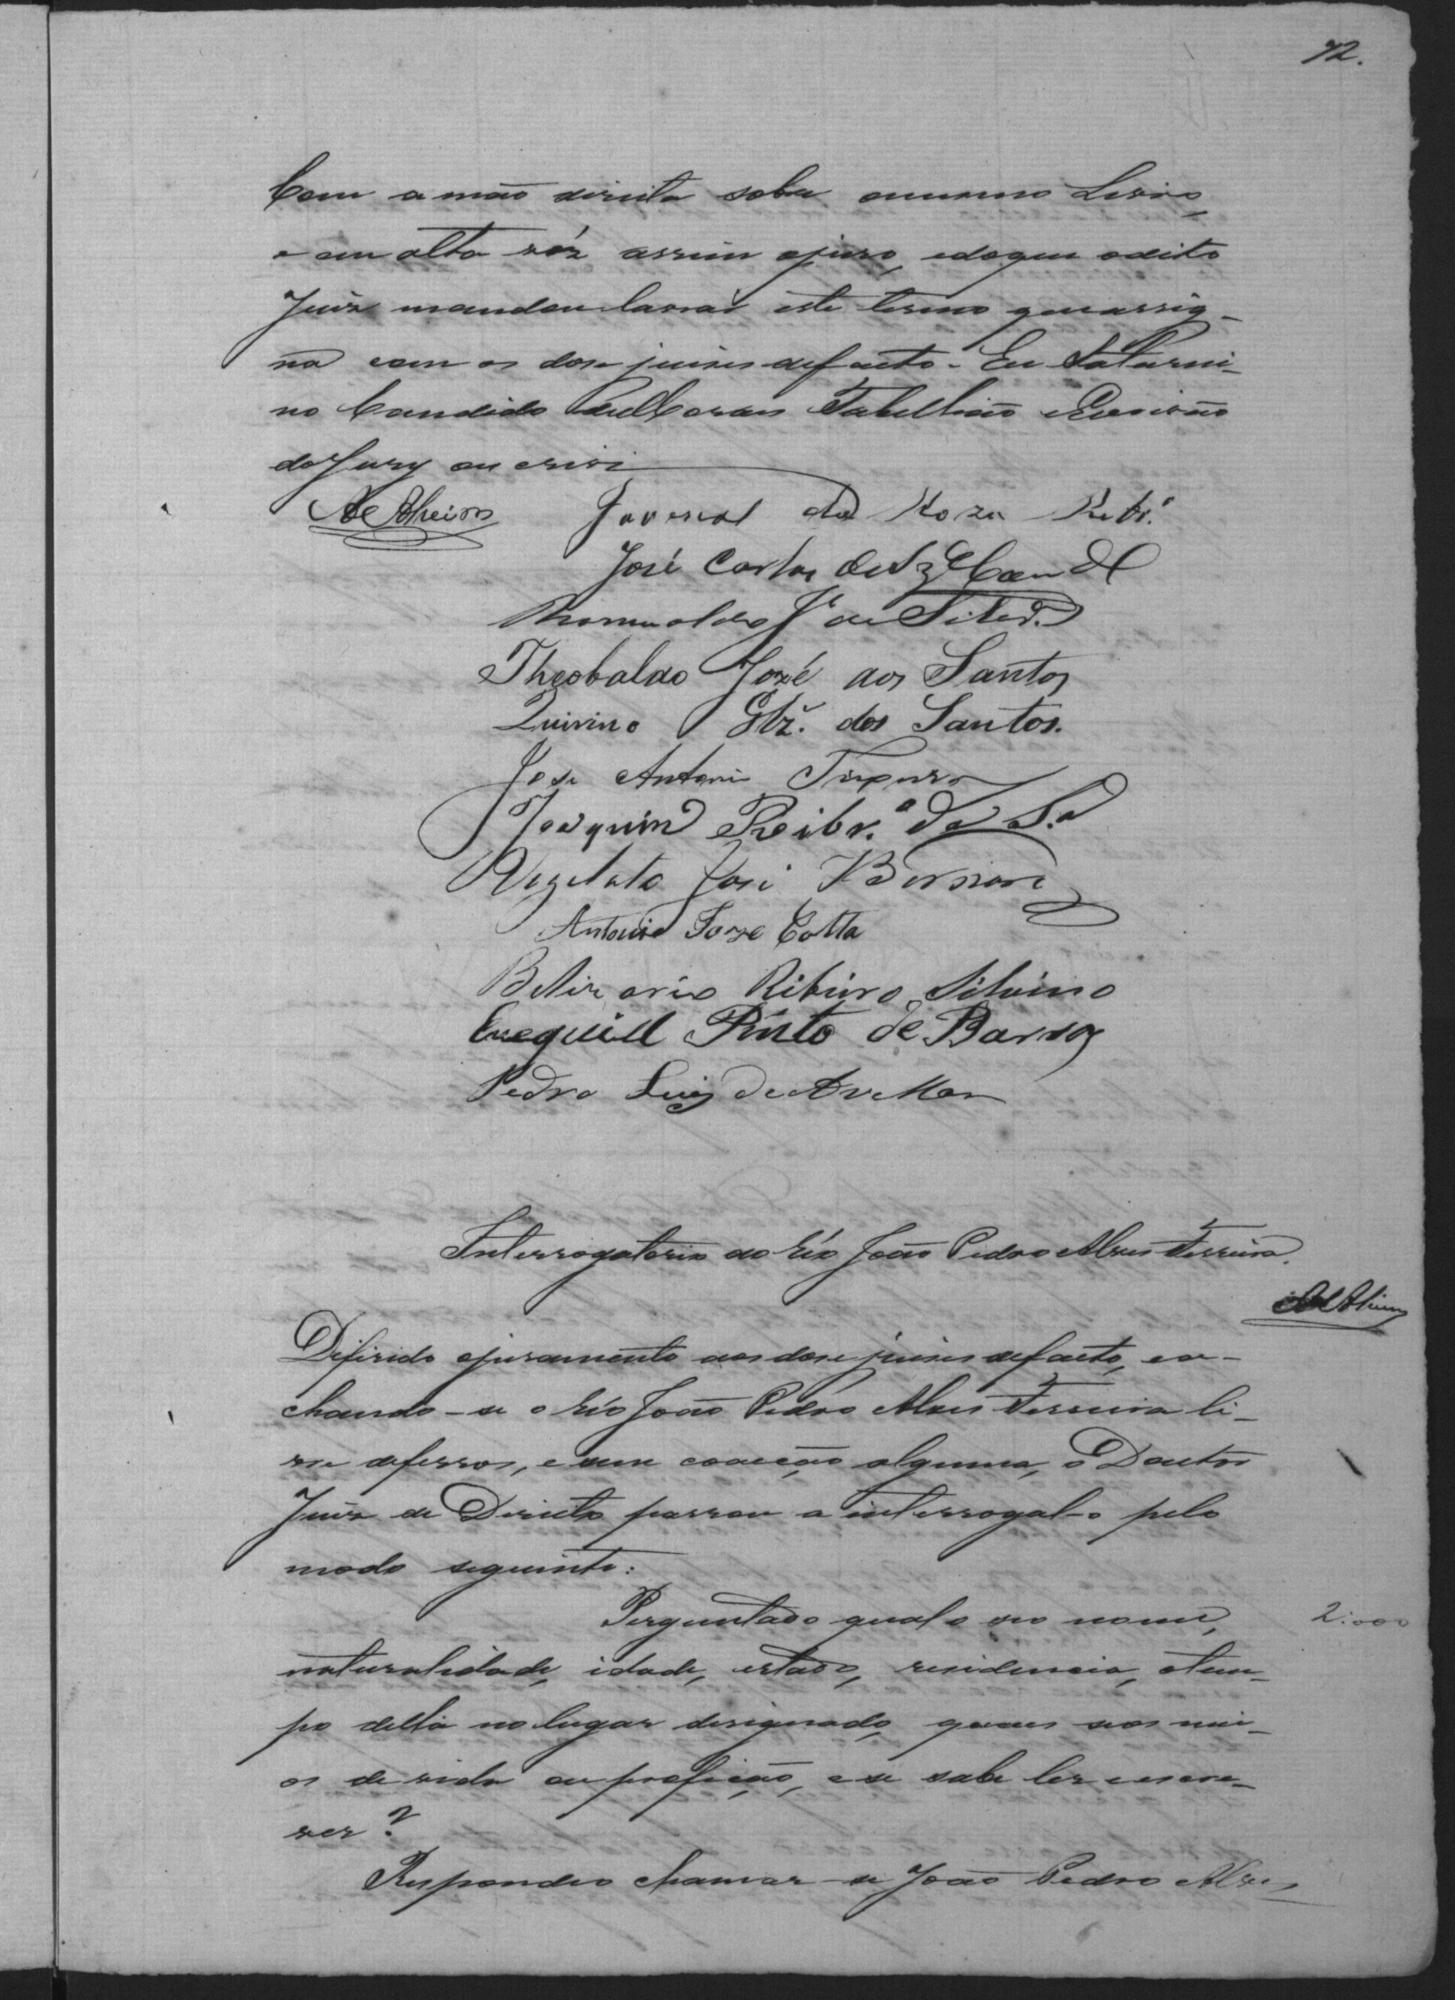 72.
Com a mão direita sobre o mesmo Livro,
e em alta vóz assim o juro, e do que o dito
Juiz mandou lavrar este termo que assig-
na com os dose juises de facto. Eu Saturni-
no Candido de Moraes Tabellião e Escrivão
do Jury o escrivi
Juvenal da Roza Ribr.º
José Carlos de
Romualdo J.e de
Theobaldo Jozé dos Santos
Quirino Glz. dos Santos.
Jose Antonio
Joaquim Reibr.º da S.a
José
Antonio Joze Cotta
Belizario Ribeiro Silvino
Ezequiel Pinto de Barros
Pedro Luiz de Avellar
Interrogatorio ao réo João Pedro Alves Ferreira.
Diferido o juramento aos dose juises de facto, e a-
chando-se o réo João Pedro Alves Ferreira li-
vre de ferros, e sem coacção alguma, o Doutor
Juiz de Direito passou a interrogal-o pelo
modo seguinte:
Perguntado qual o seo nome, 2:000
naturalidade, idade, estado, residencia, e tem-
po della no lugar designado, quaes seos mei-
os de vida ou profição, e se sabe ler e escre-
ver?
Respondeo chamar-se João Pedro Alves